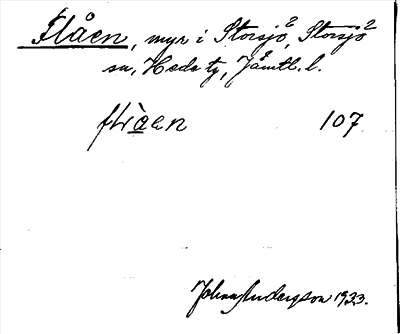 Flåen, myr i Storsjö 2, Storsjö 2
sn, Hede tg, Jämtl. l.
flὰen 107
John Anderson 1933.